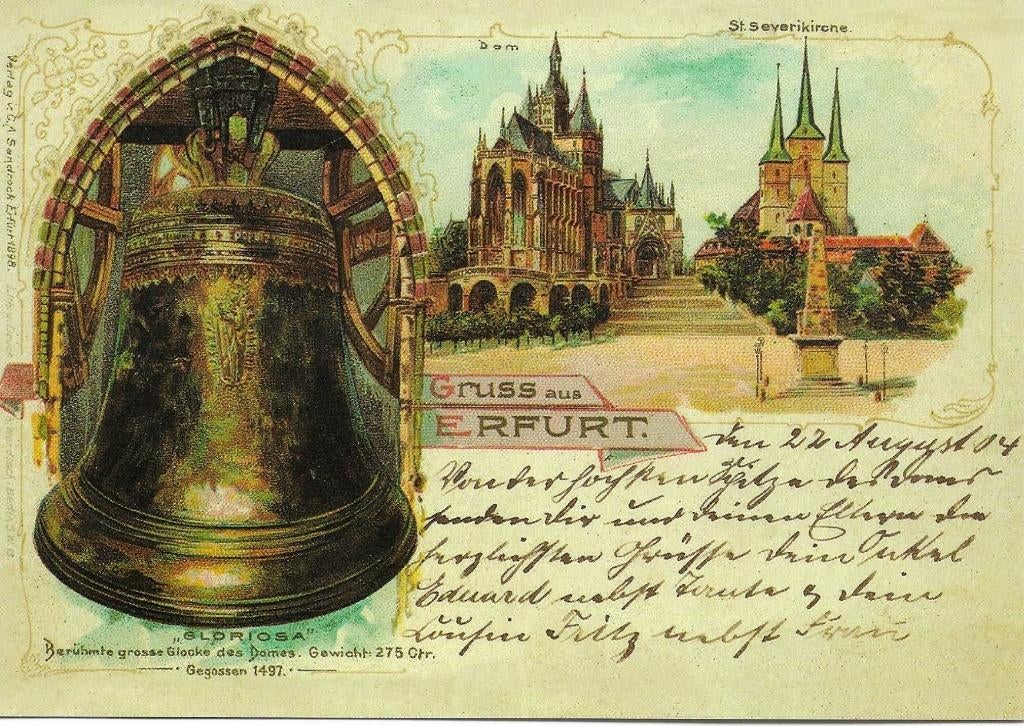 Dom
St. Severikirche.
Verlag v. C. A. Sandrock Erfurt 1898
Gruss aus
ERFURT.
den 22 August 04
Von der höchsten Spitze des Doms
senden Dir und deinen Eltern die
herzlichsten Grüsse dein Onkel
Eduard nebst Tante & dein
Cousin Fritz nebst Frau
„GLORIOSA"
Berühmte grosse Glocke des Domes. Gewicht: 275 Ctr.
Gegossen 1497.